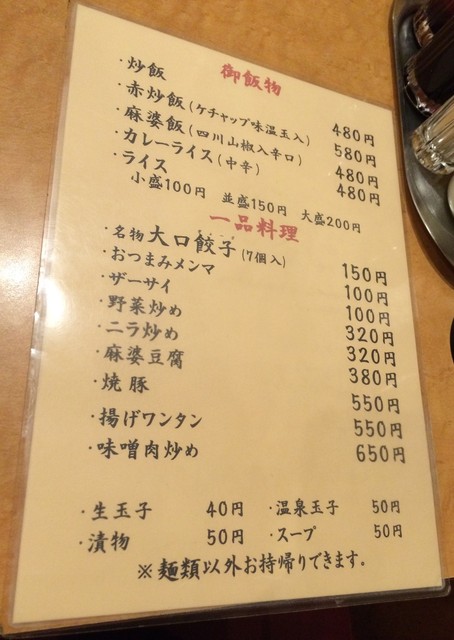 御飯物
・炒飯 480円
・赤炒飯(ケチャップ味温玉入) 580円
・麻婆飯(四川山椒入辛口) 480円
・カレーライス(中辛) 480円
・ライス
小盛100円 並盛150円 大盛200円
一品料理
・名物大口餃子(7個入) 150円
・おつまみメンマ 100円
・ザーサイ 100円
・野菜炒め 320円
・ニラ炒め 320円
・麻婆豆腐 380円
・焼豚 550円
・揚げワンタン 550円
・味噌肉炒め 650円
・生玉子 40円 ・温泉玉子 50円
・漬物 50円 ・スープ 50円
※麺類以外お持帰りできます。